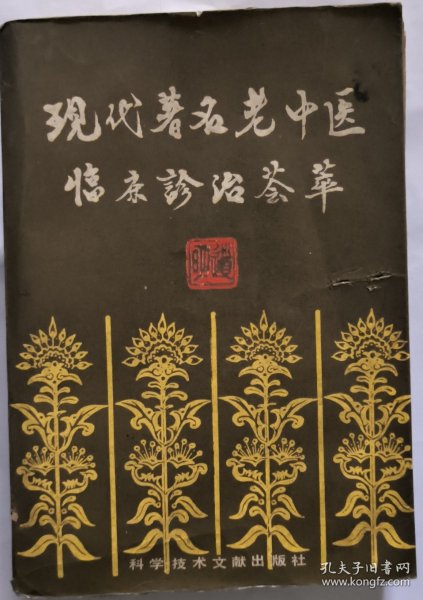 现代著名老中医
临床诊治荟萃
科学技术文献出版社
孔夫子旧书网
www.kongfz.com